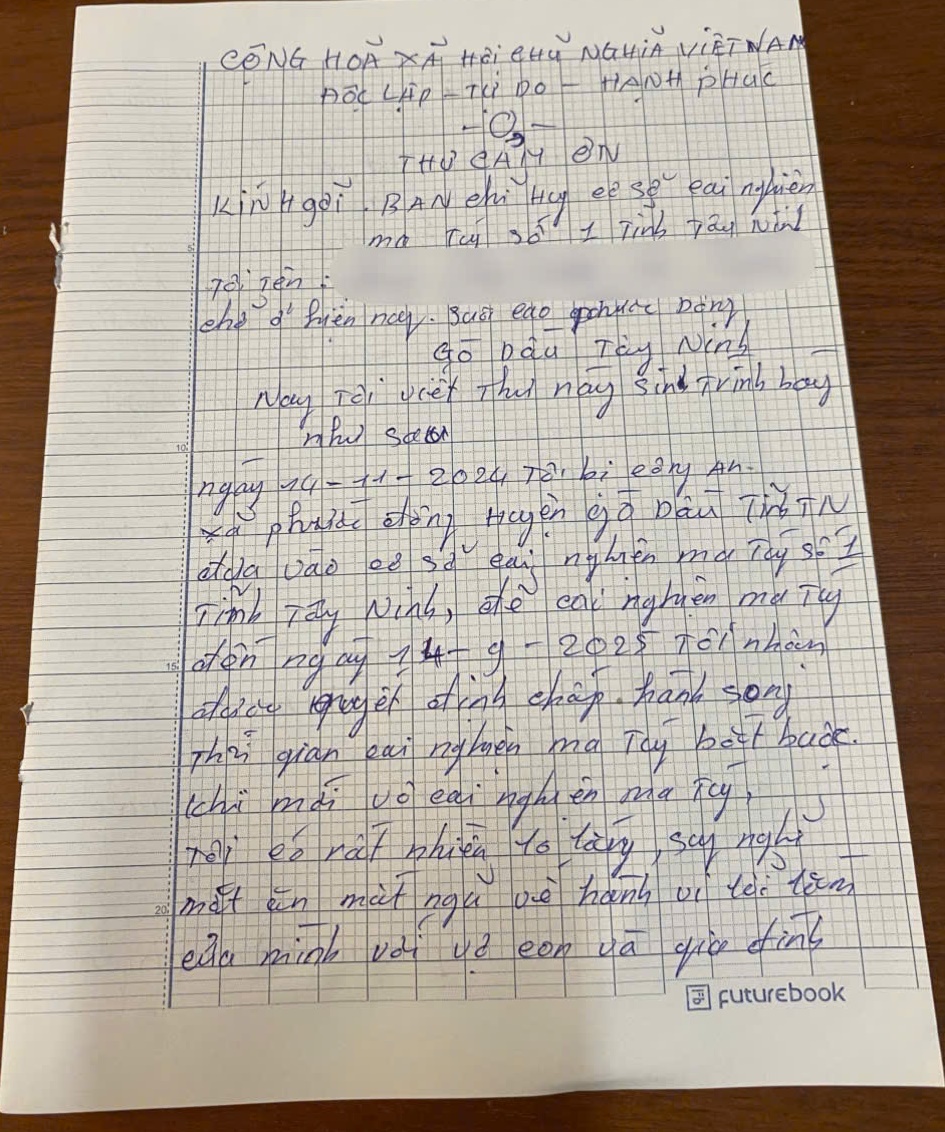 CỘNG HOÀ XÃ HỘI CHỦ NGHĨA VIỆT NAM
ĐỘC LẬP - TỰ DO - HẠNH PHÚC
THƯ CẢM ƠN
KÍNH gởi. BAN chỉ Huy cơ sở cai nghiên
ma Túy số 1 Tỉnh Tây Ninh
Tôi Tên :
chổ ở hiện nay. Suối cao phước Đông
Gò Dầu Tây Ninh
Nay Tôi viết Thư này sinh Trình bày
như sau
ngày 14-11-2024 Tôi bị công An
xã phước đông Huyện gò Dầu Tỉnh TN
đưa vào cơ sở cai nghiên ma Túy số 1
Tỉnh Tây Ninh, để cai nghiện ma Túy
đến ngày 14-9-2025 Tôi nhân
được quyết định chấp hành song
Thời gian cai nghiện ma Túy bắt buộc.
khi mới vô cai nghiên ma Túy,
Tôi có rất nhiều lo lắng, suy nghĩ
mất ăn mất ngủ về hành vi lỗi lầm
của mình với vợ con và gia đình
futurebook
5
10
15
20